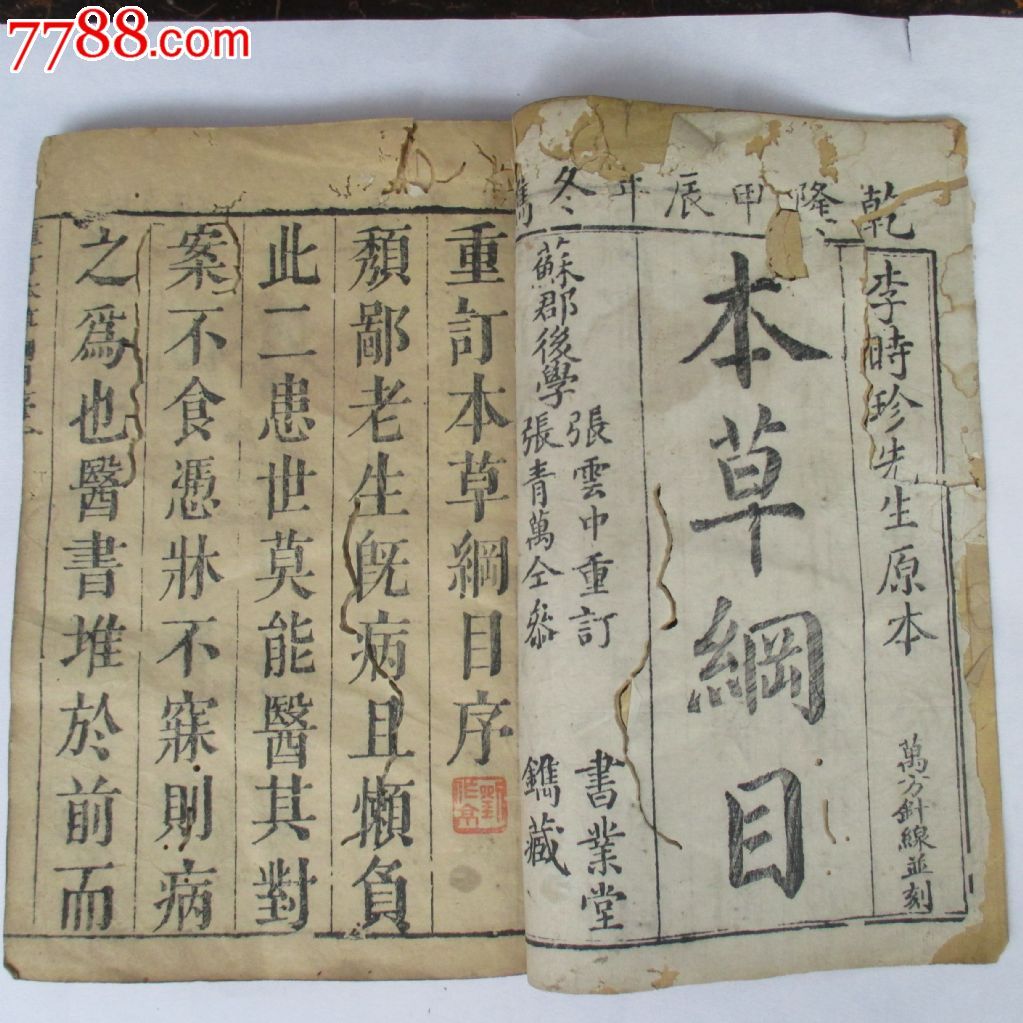 7788.com热线
乾隆甲辰年冬鐫
李時珍先生原本
萬方針線並刻
本草綱目
蘇郡後學
張雲中重訂
張青萬仝叅
書業堂
鐫藏
重訂本草綱目序
頽鄙老生旣病且懶負
此二患世莫能醫其對
案不食憑牀不寐則病
之爲也醫書堆於前而